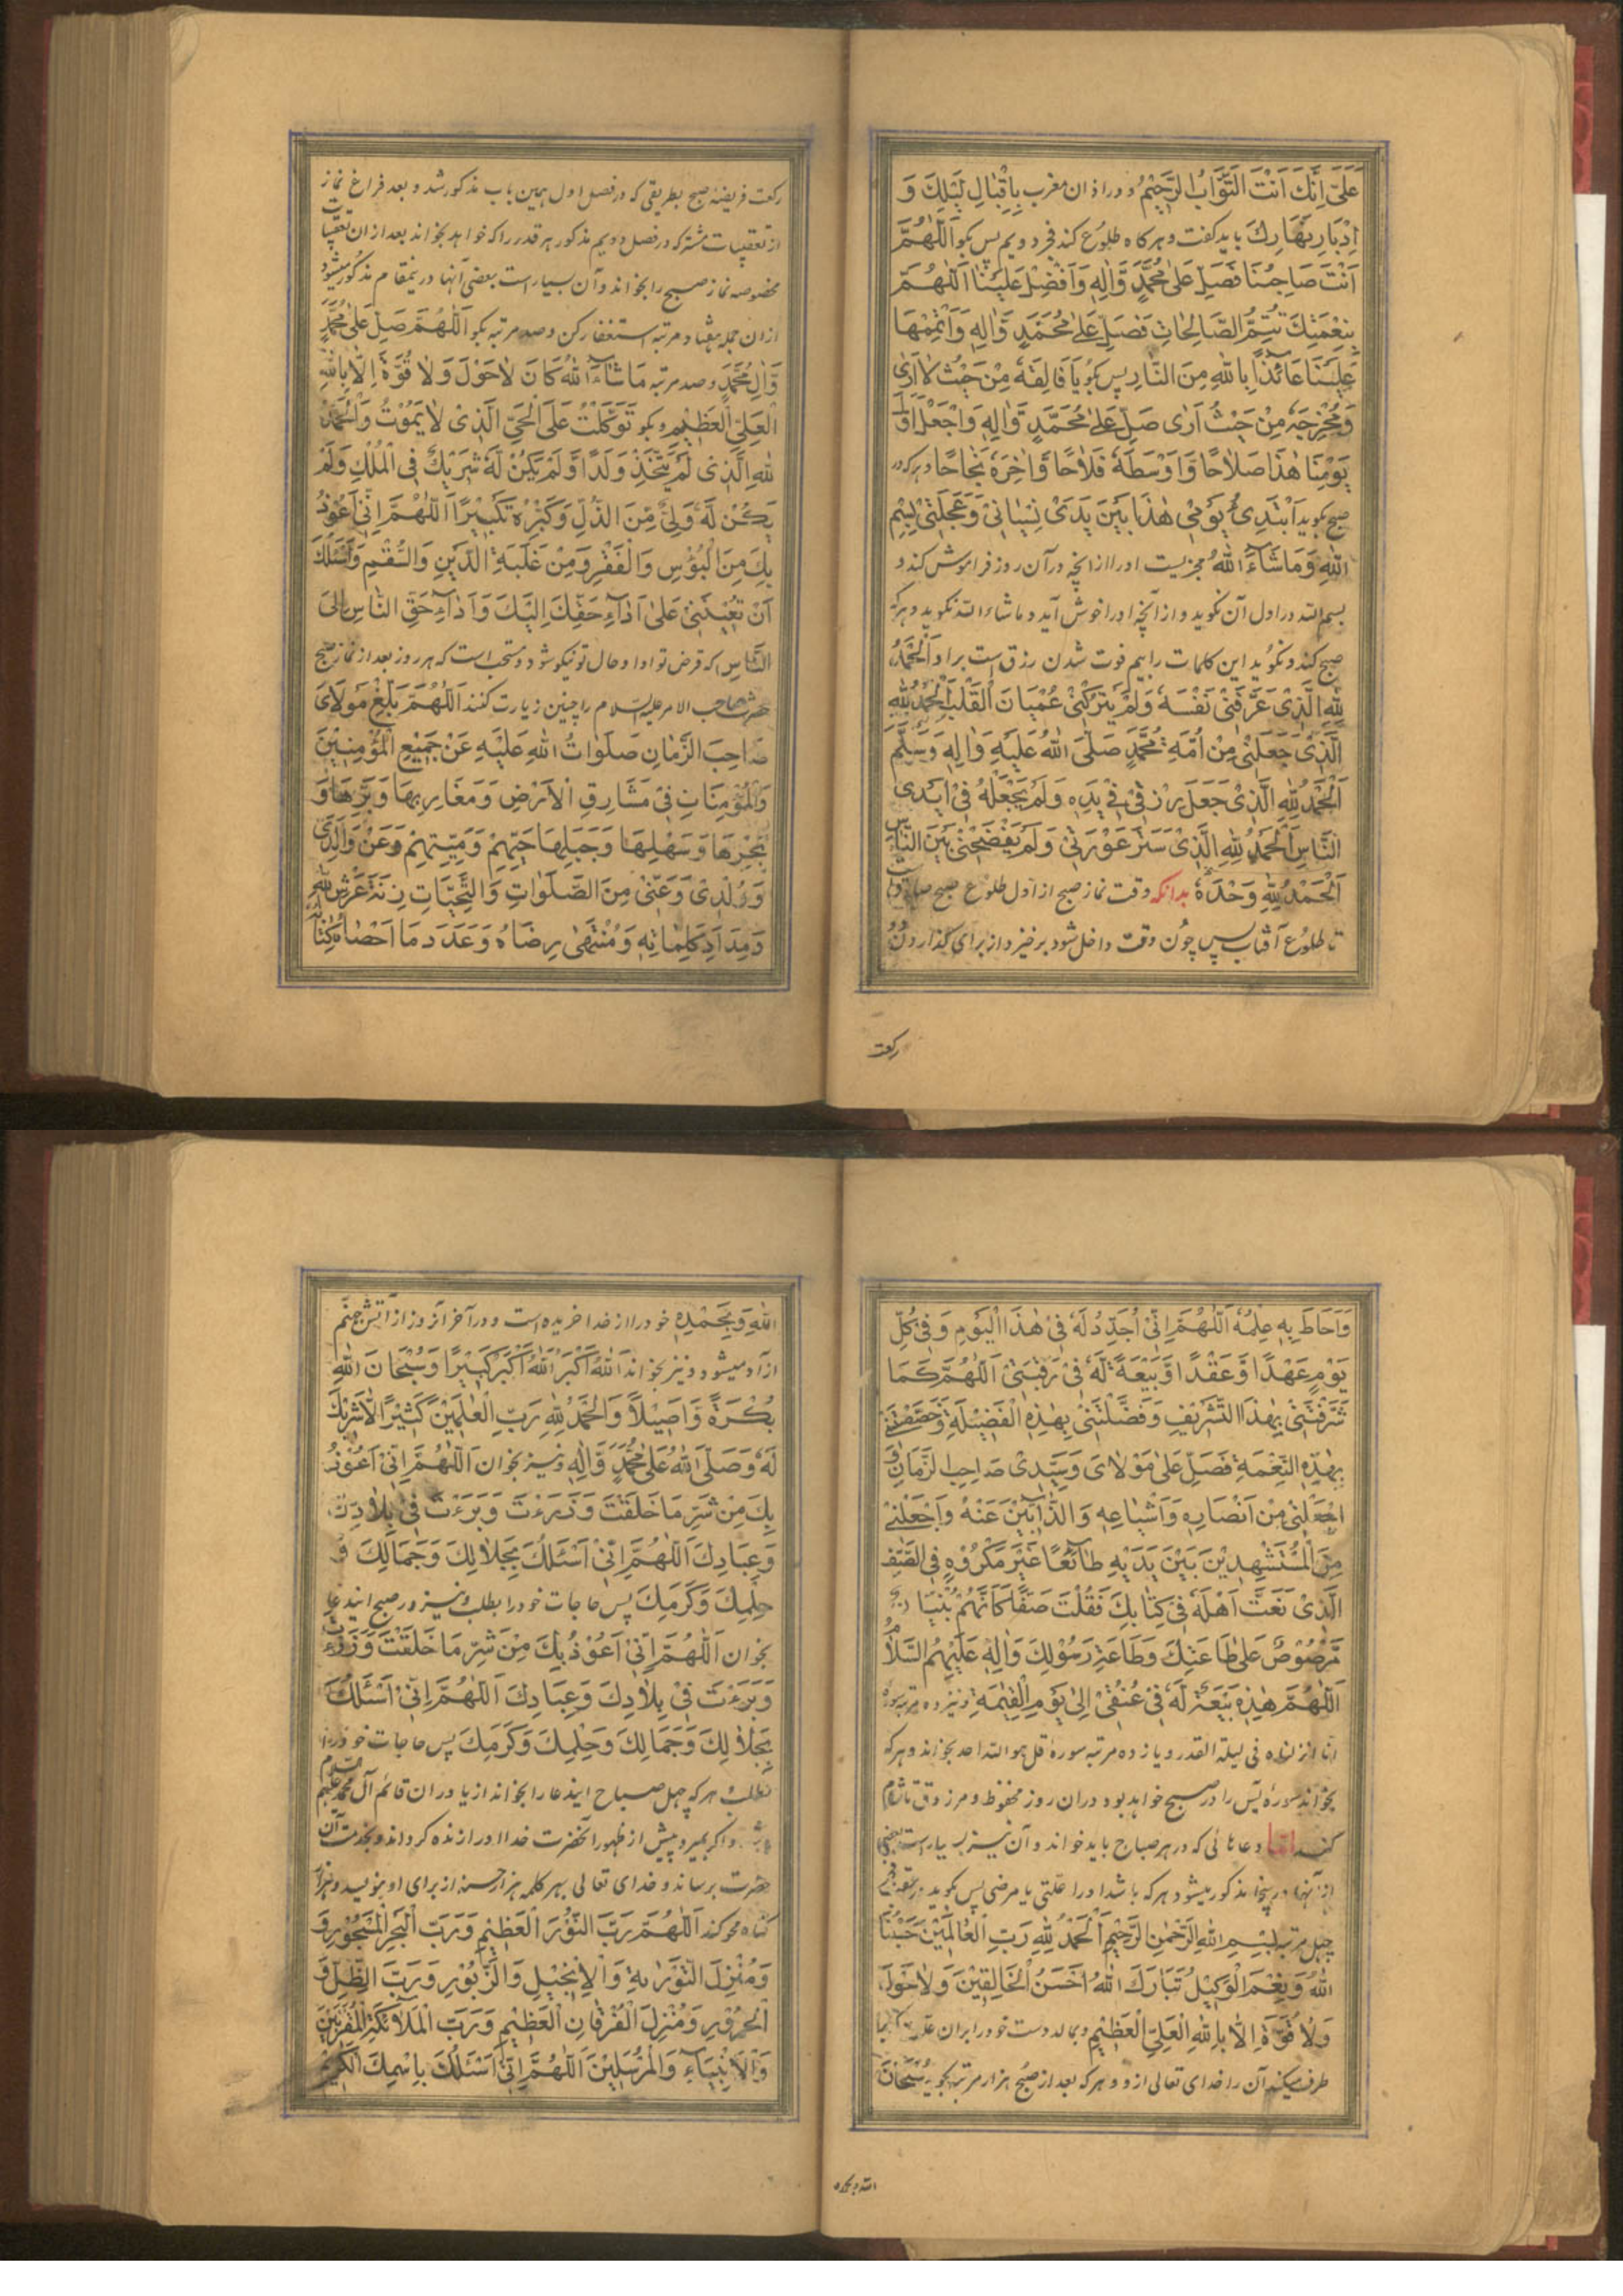 عَلَیَّ اِنَّكَ اَنْتَ التَّوَّابُ الرَّحِیْمُ و در اذان مغرب بِاِقْبَالِ لَیْلِكَ وَ
اِدْبَارِ نَهَارِكَ باید کفت و هرکاه طلوع کند فجر دویم پس بکو اَللّٰهُمَّ
اَنْتَ صَاحِبُنَا فَصَلِّ عَلیٰ مُحَمَّدٍ وَّاٰلِهٖ وَاَفْضِلْ عَلَیْنَا اَللّٰهُمَّ
بِنِعْمَتِكَ تُتِمُّ الصَّالِحَاتِ فَصَلِّ عَلیٰ مُحَمَّدٍ وَّاٰلِهٖ وَاَتْمِمْهَا
عَلَیْنَا عَائِذًا بِاللّٰهِ مِنَ النَّارِ پس بکو یَا فَالِقَهٗ مِنْ حَیْثُ لَا اَرٰی
وَمُخْرِجَهٗ مِنْ حَیْثُ اَرٰی صَلِّ عَلیٰ مُحَمَّدٍ وَّاٰلِهٖ وَاجْعَلْ اَوَّلَ
یَوْمِنَا هٰذَا صَلَاحًا وَّاَوْسَطَهٗ فَلَاحًا وَّاٰخِرَهٗ نَجَاحًا و هرکه در
صبح بکوید اَبْتَدِیُٔ یَوْمِیْ هٰذَا بَیْنَ یَدَیْ نِسْیَانِیْ وَعَجَلَتِیْ بِسْمِ
اللّٰهِ وَمَا شَاءَ اللّٰهُ مجزیست اورا از انچه در آن روز فراموش کند و
بسم الله در اول آن نکوید و از آنچه اورا خوش آید و ماشاء الله نکوید و هرکه
صبح کند و نکوید این کلمات را بیم فوت شدن رزق است براو اَلْحَمْدُ
لِلّٰهِ الَّذِیْ عَرَّفَنِیْ نَفْسَهٗ وَلَمْ یَتْرُکْنِیْ عُمْیَانَ الْقَلْبِ اَلْحَمْدُ لِلّٰهِ
الَّذِیْ جَعَلَنِیْ مِنْ اُمَّةِ مُحَمَّدٍ صَلَّی اللّٰهُ عَلَیْهِ وَاٰلِهٖ وَسَلَّمَ
اَلْحَمْدُ لِلّٰهِ الَّذِیْ جَعَلَ رِزْقِیْ فِیْ یَدِهٖ وَلَمْ یَجْعَلْهُ فِیْ اَیْدِی
النَّاسِ اَلْحَمْدُ لِلّٰهِ الَّذِیْ سَتَرَ عَوْرَتِیْ وَلَمْ یَفْضَحْنِیْ بَیْنَ النَّاسِ
اَلْحَمْدُ لِلّٰهِ وَحْدَهٗ بدانکه وقت نماز صبح از اول طلوع صبح صادق است
تا طلوع آفتاب پس چون وقت داخل شود برخیزد از برای کذاردن
رکعت
رکعت فریضه صبح بطریقی که در فصل اول همین باب مذکور شد و بعد فراغ نماز
از تعقیبات مشترکه در فصل دویم مذکور هر قدر را که خواهد بخواند بعد از ان تعقیبات
مخصوصه نماز صبح را بخواند و آن بسیار است بعضی آنها درینمقام مذکور میشود
ازان جمله هفتاد مرتبه استغفار کن و صد مرتبه بکو اَللّٰهُمَّ صَلِّ عَلیٰ مُحَمَّدٍ
وَّاٰلِ مُحَمَّدٍ و صد مرتبه مَا شَاءَ اللّٰهُ کَانَ لَا حَوْلَ وَلَا قُوَّةَ اِلَّا بِاللّٰهِ
الْعَلِیِّ الْعَظِیْمِ و بکو تَوَکَّلْتُ عَلَی الْحَیِّ الَّذِیْ لَا یَمُوْتُ وَالْحَمْدُ
لِلّٰهِ الَّذِیْ لَمْ یَتَّخِذْ وَلَدًا وَّلَمْ یَکُنْ لَهٗ شَرِیْكٌ فِی الْمُلْكِ وَلَمْ
یَکُنْ لَهٗ وَلِیٌّ مِّنَ الذُّلِّ وَکَبِّرْهُ تَکْبِیْرًا اَللّٰهُمَّ اِنِّیْ اَعُوْذُ
بِكَ مِنَ الْبُؤْسِ وَالْفَقْرِ وَمِنْ غَلَبَةِ الدَّیْنِ وَالسُّقْمِ وَاَسْئَلُكَ
اَنْ تُعِیْنَنِیْ عَلیٰ اَدَاءِ حَقِّكَ اِلَیْكَ وَاَدَاءِ حَقِّ النَّاسِ اِلَی
النَّاسِ که قرض تو ادا و حال تو نیکو شود و مستحب است که هر روز بعد از نماز صبح
حضرت صاحب الامر علیه السلام را چنین زیارت کنند اَللّٰهُمَّ بَلِّغْ مَوْلَایَ
صَاحِبَ الزَّمَانِ صَلَوَاتُ اللّٰهِ عَلَیْهِ عَنْ جَمِیْعِ الْمُؤْمِنِیْنَ
وَالْمُؤْمِنَاتِ فِیْ مَشَارِقِ الْاَرْضِ وَمَغَارِبِهَا وَبَرِّهَا وَ
بَحْرِهَا وَسَهْلِهَا وَجَبَلِهَا حَیِّهِمْ وَمَیِّتِهِمْ وَعَنْ وَالِدَیَّ
وَوُلْدِیْ وَعَنِّیْ مِنَ الصَّلَوَاتِ وَالتَّحِیَّاتِ زِنَةَ عَرْشِ اللّٰهِ
وَمِدَادَ کَلِمَاتِهٖ وَمُنْتَهٰی رِضَاهُ وَعَدَدَ مَا اَحْصَاهُ کِتَابُهٗ
وَاَحَاطَ بِهٖ عِلْمُهٗ اَللّٰهُمَّ اِنِّیْ اُجَدِّدُ لَهٗ فِیْ هٰذَا الْیَوْمِ وَفِیْ کُلِّ
یَوْمٍ عَهْدًا وَّعَقْدًا وَّبَیْعَةً لَهٗ فِیْ رَقَبَتِیْ اَللّٰهُمَّ کَمَا
شَرَّفْتَنِیْ بِهٰذَا التَّشْرِیْفِ وَفَضَّلْتَنِیْ بِهٰذِهِ الْفَضِیْلَةِ وَخَصَصْتَنِیْ
بِهٰذِهِ النِّعْمَةِ فَصَلِّ عَلیٰ مَوْلَایَ وَسَیِّدِیْ صَاحِبِ الزَّمَانِ وَ
اجْعَلْنِیْ مِنْ اَنْصَارِهٖ وَاَشْیَاعِهٖ وَالذَّابِّیْنَ عَنْهُ وَاجْعَلْنِیْ
مِنَ الْمُسْتَشْهَدِیْنَ بَیْنَ یَدَیْهِ طَائِعًا غَیْرَ مَکْرُوْهٍ فِی الصَّفِّ
الَّذِیْ نَعَتَّ اَهْلَهٗ فِیْ کِتَابِكَ فَقُلْتَ صَفًّا کَاَنَّهُمْ بُنْیَانٌ
مَّرْصُوْصٌ عَلیٰ طَاعَتِكَ وَطَاعَةِ رَسُوْلِكَ وَاٰلِهٖ عَلَیْهِمُ السَّلَامُ
اَللّٰهُمَّ هٰذِهٖ بَیْعَةٌ لَهٗ فِیْ عُنُقِیْ اِلیٰ یَوْمِ الْقِیٰمَةِ و نیز ده مرتبه سوره
انا انزلناه فی لیلة القدر و یازده مرتبه سوره قل هو الله احد بخواند و هرکه
بخواند سوره یس را در صبح خواهد بود دران روز محفوظ و مرزوق تا شام
کند اما دعائی که در هر صباح باید خواند و آن نیز بسیار است بعضی
از آنها در ینجا مذکور میشود هرکه باشد اورا علتی یا مرضی پس بکوید
چهل مرتبه بِسْمِ اللّٰهِ الرَّحْمٰنِ الرَّحِیْمِ اَلْحَمْدُ لِلّٰهِ رَبِّ الْعَالَمِیْنَ حَسْبُنَا
اللّٰهُ وَنِعْمَ الْوَکِیْلُ تَبَارَكَ اللّٰهُ اَحْسَنُ الْخَالِقِیْنَ وَلَا حَوْلَ
وَلَا قُوَّةَ اِلَّا بِاللّٰهِ الْعَلِیِّ الْعَظِیْمِ و بمالد دست خود را بران علت
طرف میکند آن را خدای تعالی ازو و هرکه بعد از صبح هزار مرتبه بکوید سُبْحَانَ
الله وبحمده
اللّٰهِ وَبِحَمْدِهٖ خود را از خدا خریده است و در آخر آنروز از آتش جهنم
ازاد میشود و نیز بخواند اَللّٰهُ اَکْبَرُ اَللّٰهُ اَکْبَرُ کَبِیْرًا وَسُبْحَانَ اللّٰهِ
بُکْرَةً وَّاَصِیْلًا وَالْحَمْدُ لِلّٰهِ رَبِّ الْعٰلَمِیْنَ کَثِیْرًا لَا شَرِیْكَ
لَهٗ وَصَلَّی اللّٰهُ عَلیٰ مُحَمَّدٍ وَّاٰلِهٖ و نیز بخوان اَللّٰهُمَّ اِنِّیْ اَعُوْذُ
بِكَ مِنْ شَرِّ مَا خَلَقْتَ وَذَرَءْتَ وَبَرَءْتَ فِیْ بِلَادِكَ
وَعِبَادِكَ اَللّٰهُمَّ اِنِّیْ اَسْئَلُكَ بِجَلَالِكَ وَجَمَالِكَ وَ
حِلْمِكَ وَکَرَمِكَ پس حاجات خود را بطلب و نیز در صبح ایندعا
بخوان اَللّٰهُمَّ اِنِّیْ اَعُوْذُ بِكَ مِنْ شَرِّ مَا خَلَقْتَ وَذَرَءْتَ
وَبَرَءْتَ فِیْ بِلَادِكَ وَعِبَادِكَ اَللّٰهُمَّ اِنِّیْ اَسْئَلُكَ
بِجَلَالِكَ وَجَمَالِكَ وَحِلْمِكَ وَکَرَمِكَ پس حاجات خود را
بطلب هرکه چهل صباح ایندعا را بخواند از یاوران قائم آل محمد علیهم السلام
باشد و اکر بمیرد پیش از ظهور آنحضرت خدا اورا زنده کرداند و بخدمت آن
حضرت برساند و خدای تعالی بهر کلمه هزار حسنه از برای او بنویسد و هزار
کناه محو کند اَللّٰهُمَّ رَبَّ النُّوْرِ الْعَظِیْمِ وَرَبَّ الْبَحْرِ الْمَسْجُوْرِ وَ
وَمُنْزِلَ التَّوْرٰیةِ وَالْاِنْجِیْلِ وَالزَّبُوْرِ وَرَبَّ الظِّلِّ وَ
الْحَرُوْرِ وَمُنْزِلَ الْفُرْقَانِ الْعَظِیْمِ وَرَبَّ الْمَلَائِکَةِ الْمُقَرَّبِیْنَ
وَالْاَنْبِیَاءِ وَالْمُرْسَلِیْنَ اَللّٰهُمَّ اِنِّیْ اَسْئَلُكَ بِاسْمِكَ الْکَرِیْمِ